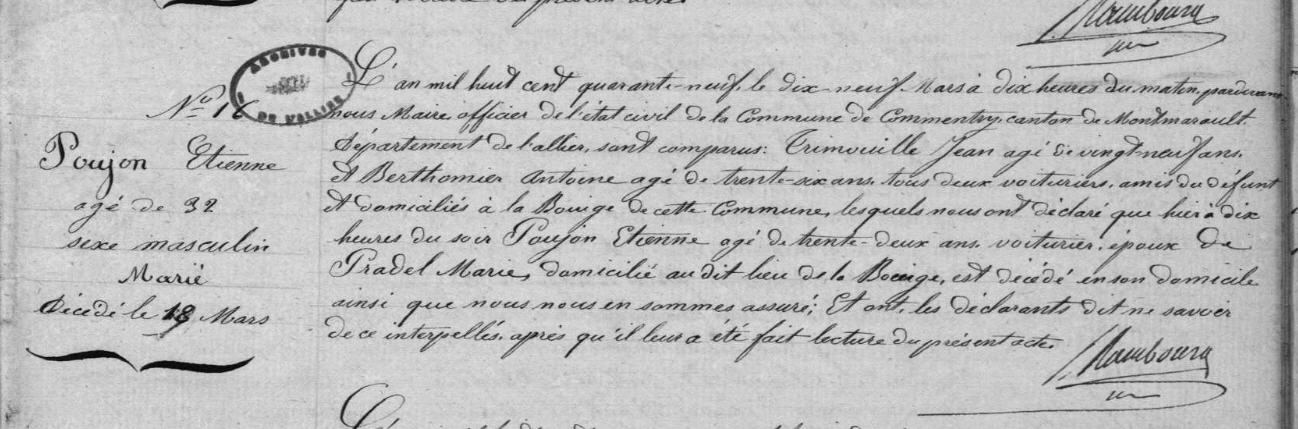 Rambourg
ARCHIVES
DE L'ALLIER
N.º 16
Poujon Etienne
agé de 32
sexe masculin
Marié
Décédé le 18 Mars
L'an mil huit cent quarante-neuf, le dix neuf Mars à dix heures du matin, pardevant
nous Maire, officier de l'état civil de la Commune de Commentry, canton de Montmarault.
Département de l'allier, sont comparus: Trimouille Jean agé de vingt-neuf ans.
Et Berthomier Antoine agé de trente-six ans. tous deux voituriers, amis du défunt
Et domiciliés à la Bouige de cette Commune, lesquels nous ont déclaré que hier à dix
heures du soir Poujon Etienne agé de trente-deux ans, voiturier, époux de
Pradel Marie, domicilié au dit lieu de la Bouige, est décédé en son domicile
ainsi que nous nous en sommes assuré; Et ont, les déclarants dit ne savoir
de ce interpellés, après qu'il leur a été fait lecture du présent acte.
Rambourg